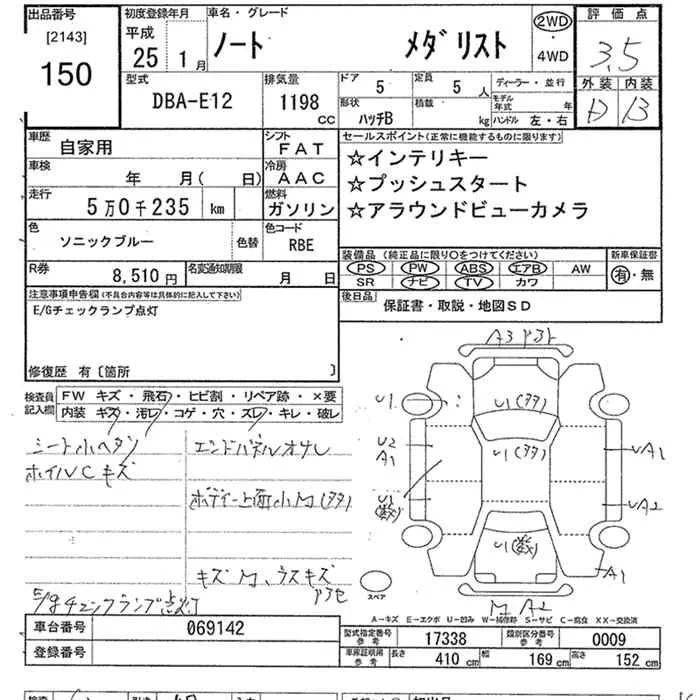 出品番号
[2143]
150
初度登録年月
平成
25 1月
車名・グレード
ノート メダリスト
2WD
・
4WD
評価点
3.5
外装 内装
D B
型式
DBA-E12
排気量
1198
CC
ドア
5
定員
5人
ディーラー・並行
形状
ハッチB
積載
kg
モデル年式 年
ハンドル 左・右
車歴
自家用
シフト
FAT
車検
年 月( 日)
冷房
AAC
走行
5万0千235 km
燃料
ガソリン
色
ソニックブルー
色替
色コード
RBE
R券
8,510円
名変通知期限
月 日
セールスポイント(正常に機能するものに限ります)
☆インテリキー
☆プッシュスタート
☆アラウンドビューカメラ
装備品(純正品に限り○をつけてください)
PS PW ABS エアB AW
SR ナビ TV カワ
新車保証書
有・無
後日品
保証書・取説・地図SD
注意事項申告欄(不具合内容等は具体的に記入して下さい)
E/Gチェックランプ点灯
修復歴 有〔箇所 〕
検査員
記入欄
FW キズ・飛石・ヒビ割・リペア跡・×要
内装 キズ・汚レ・コゲ・穴・スレ・キレ・破レ
シート小ヘタリ
ホイルCキズ
エンドパネルオサレ
ボディー上面小M(タタ)
キズM、ラスキズ
エンジンランプ点灯
A3
U1
U1(タタ)
U2
A1
U1(タタ)
UA1
U1
(数)
UA2
U1(数)
A1
M A2
スペア
A-キズ E-エクボ U-凹み W-補修跡 S-サビ C-腐食 XX-交換済
車台番号
069142
登録番号
型式指定番号
参考
17338
類別区分番号
参考
0009
車庫証明用
参考
長さ
410cm
幅
169cm
高さ
152cm